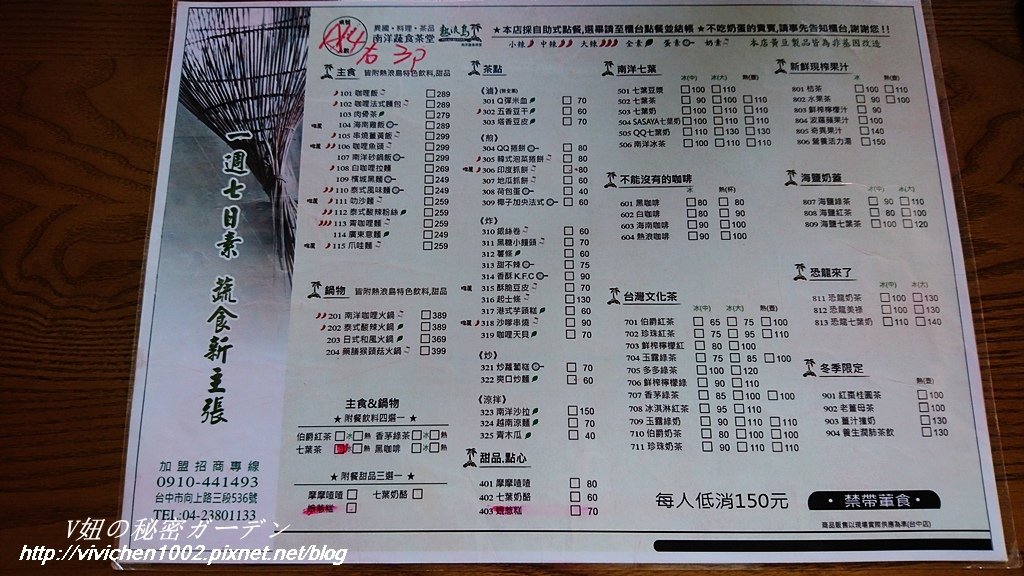 一週七日素 蔬食新主張
加盟招商專線
0910-441493
台中市向上路三段536號
TEL:04-23801133
異國·料理·茶品
南洋蔬食茶堂
熱浪島
★本店採自助式點餐,選畢請至櫃台點餐並結帳 ★不吃奶蛋的貴賓,請事先告知櫃台,謝謝您!!
小辣 中辣 大辣 全素 蛋素 奶素 本店黃豆製品皆為非基因改造
主食 皆附熱浪島特色飲料,甜品
101 咖哩飯 289
102 咖哩法式麵包 289
103 肉骨茶 279
104 海南雞飯 289
105 串燒薑黃飯 299
106 咖哩魚頭 299
107 南洋砂鍋飯 299
108 白咖哩拉麵 269
109 檳城黑麵 249
110 泰式風味麵 249
111 叻沙麵 259
112 泰式酸辣粉絲 259
113 青咖哩麵 259
114 廣東意麵 249
115 爪哇麵 259
鍋物 皆附熱浪島特色飲料,甜品
201 南洋咖哩火鍋 389
202 泰式酸辣火鍋 389
203 日式和風火鍋 369
204 藥膳猴頭菇火鍋 399
主食&鍋物
★ 附餐飲料四選一 ★
伯爵紅茶 冰 熱 香茅綠茶 冰 熱
七葉茶 冰 熱 黑咖啡 冰 熱
★ 附餐甜品三選一 ★
摩摩喳喳 七葉奶酪
娘惹糕
茶點
《滷》(限全素)
301 Q彈米血 70
302 五香豆干 60
303 塔香豆皮 70
《煎》
304 QQ捲餅 80
305 韓式泡菜捲餅 80
306 印度抓餅 80
307 地瓜抓餅 60
308 荷包蛋 40
309 椰子加央法式 60
《炸》
310 銀絲卷 60
311 黑糖小饅頭 70
312 薯條 60
313 甜不辣 75
314 香酥K.F.C 90
315 酥脆豆皮 70
316 起士條 130
317 港式芋頭糕 60
318 沙嗲串燒 90
319 咖哩天貝 70
《炒》
321 炒蘿蔔糕 70
322 爽口炒麵 60
《涼拌》
323 南洋沙拉 150
324 越南涼麵 70
325 青木瓜 40
甜品.點心
401 摩摩喳喳 80
402 七葉奶酪 60
403 娘惹糕 70
南洋七葉
冰(中) 冰(大) 熱(壺)
501 七葉豆漿 100 110
502 七葉茶 90 100 110
503 七葉奶 100 110 110
504 SASAYA七葉奶 100 110 110
505 QQ七葉奶 110 130 130
506 南洋冰茶 100 110 110
不能沒有的咖啡
冰 熱(杯)
601 黑咖啡 80 80
602 白咖啡 80 90
603 海南咖啡 90 100
604 熱浪咖啡 90 100
台灣文化茶
冰(中) 冰(大) 熱(壺)
701 伯爵紅茶 65 75 100
702 珍珠紅茶 80 90 110
703 鮮榨檸檬紅 80 100
704 玉露綠茶 75 85 100
705 多多綠茶 100 120
706 鮮榨檸檬綠 90 110
707 香茅綠茶 85 100 100
708 冰淇淋紅茶 90 110
709 玉露綠奶 90 110 110
710 伯爵奶茶 80 100 110
711 珍珠奶茶 90 110 110
新鮮現榨果汁
冰(中) 冰(大) 熱(壺)
801 桔茶 100 110
802 水果茶 90 100
803 鮮榨檸檬汁 90
804 波羅蘋果汁 100
805 奇異果汁 140
806 營養活力湯 150
海鹽奶蓋
冰(中) 冰(大)
807 海鹽綠茶 90 110
808 海鹽紅茶 80 100
809 海鹽七葉茶 100 120
恐龍來了
冰(中) 冰(大)
811 恐龍奶茶 100 130
812 恐龍美祿 100 130
813 恐龍七葉奶 110 140
冬季限定
熱(壺)
901 紅棗桂圓茶 100
902 老薑母茶 100
903 薑汁撞奶 130
904 養生潤肺茶飲 130
每人低消150元
·禁帶葷食·
商品販售以現場實際供應為準(台中店)
V妞の秘密ガーデン
http://vivichen1002.pixnet.net/blog